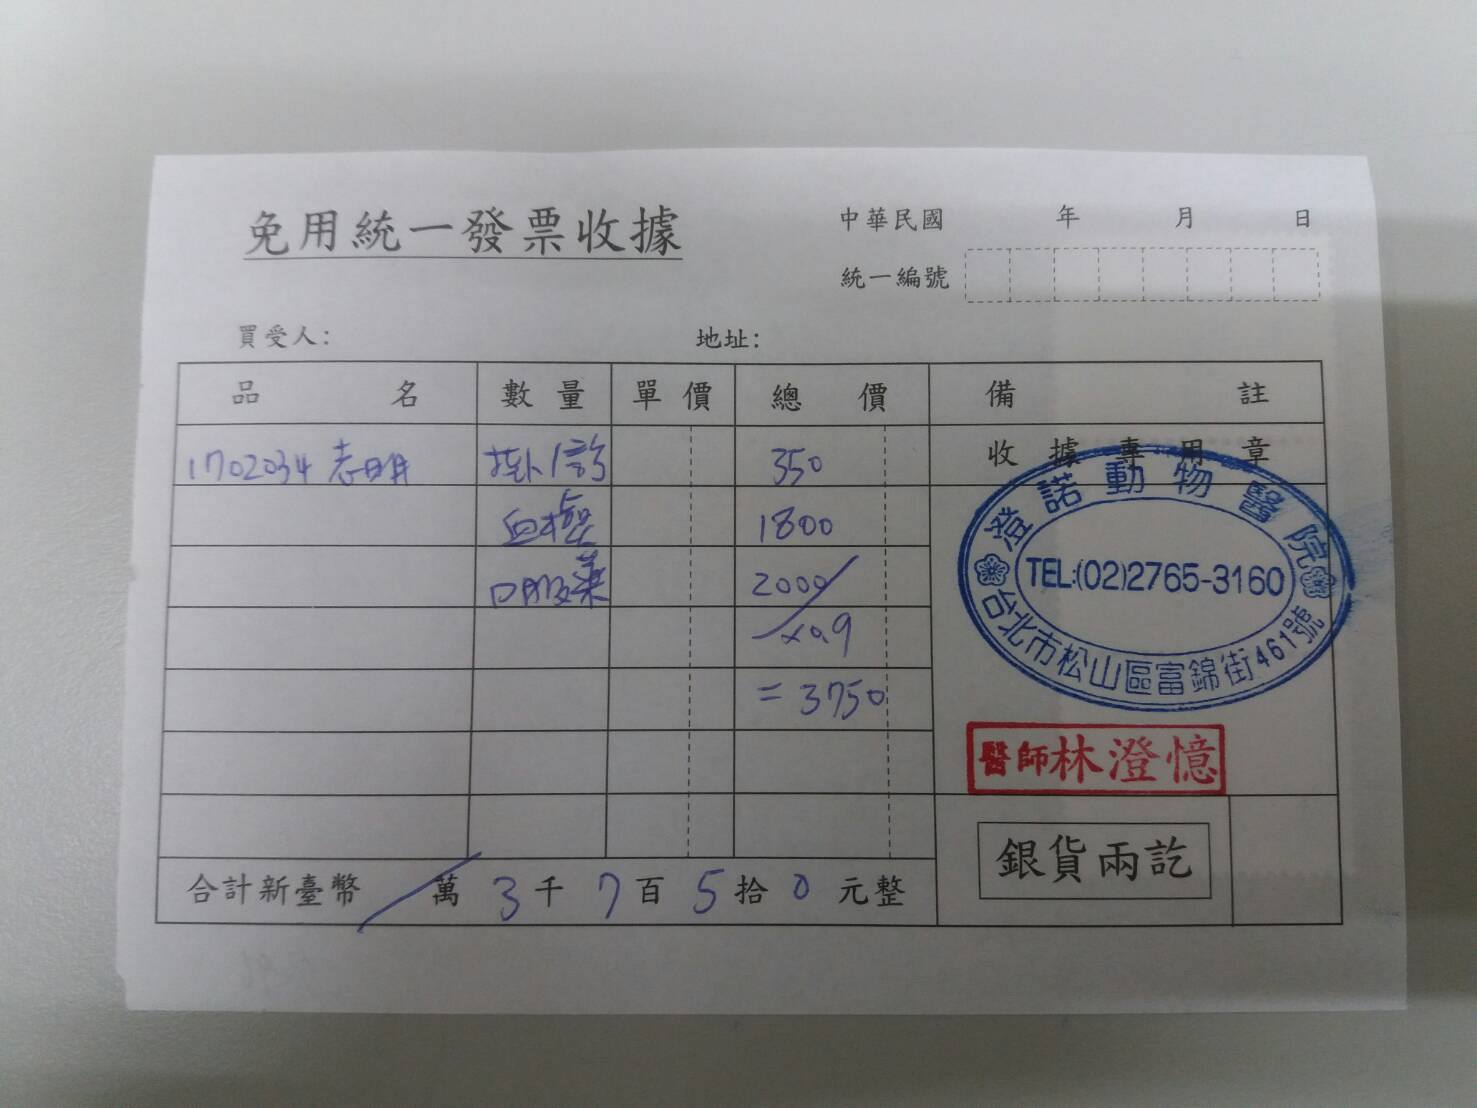 免用統一發票收據
中華民國 年 月 日
統一編號
買受人: 地址:
品名 數量 單價 總價 備註
1702034 志明 掛/診 350 收據專用章
血檢 1800
口服藥 2000
×0.9
= 3750
澄諾動物醫院
TEL:(02)2765-3160
台北市松山區富錦街461號
醫師林澄憶
銀貨兩訖
合計新臺幣 / 萬 3 千 7 百 5 拾 0 元整